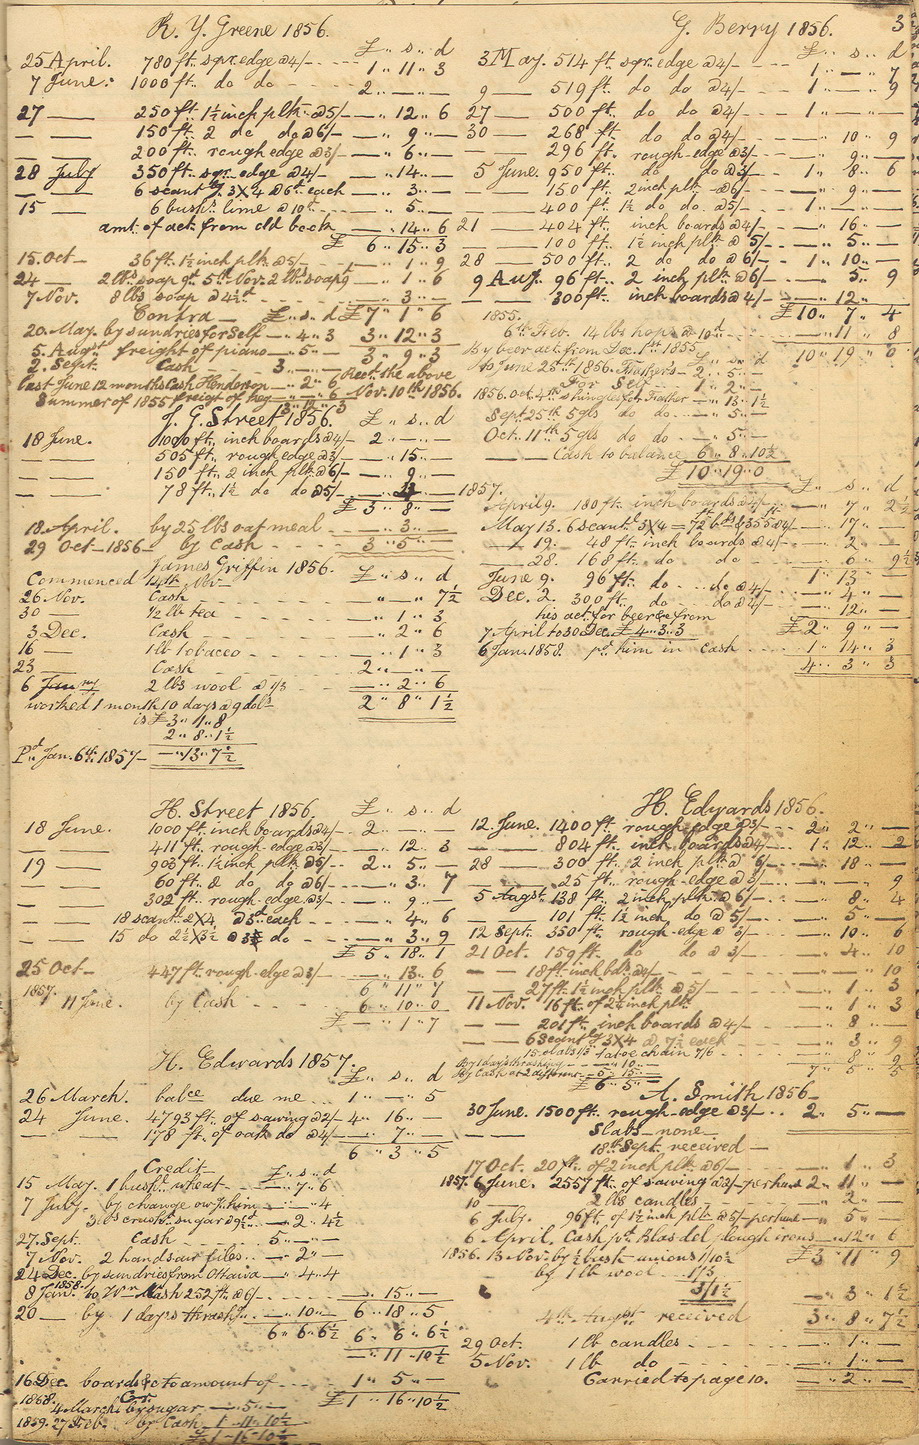 R. Y. Greene 1856.
£ s d
25 April. 780 ft. sqr. edge @ 4/- 1 " 11 " 3
7 June. 1000 ft. do do 2 " — " —
27 — 250 ft. 1½ inch plk @ 5/- — " 12 " 6
— — 150 ft. 2 do do @ 6/- — " 9 " —
200 ft. rough edge @ 3/- — " 6 " —
28 July 350 ft. sqr. edge @ 4/- — " 14 " —
— — 6 scantg 3X4 @ 6d. each — " 3 " —
15 — 6 bushs lime @ 10d. — " 5 " —
amt. of act. from old book — " 14 " 6
£ 6 " 15 " 3
15. Oct — 36 ft. 1½ inch plk @ 5/- — " 1 " 9
24 — 2 lbs soap 9d. 5th Nov. 2 lbs soap 9 — " 1 " 6
7 Nov. 8 lbs soap @ 4½d. — " 3 " —
Contra £ " s " d £ 7 " 1 " 6
20. May. by sundries for self — " 4 " 3 3 " 12 " 3
5. Augst freight of piano — " 5 " — 3 " 9 " 3
2. Sept. Cash 3 " — " — Rect. the above
last June 12 months Cash Henderson — " 2 " 6 Nov. 10th 1856.
Summer of 1855 freigt of Keg — " — " 6
J. G. Street 1856.
£ " s " d
18 June. 1000 ft. inch boards @ 4/- 2 " — " —
— — 505 ft. rough edge @ 3/- — " 15 " —
— — 150 ft. 2 inch plk @ 6/- — " 9 " —
— — 78 ft. 1½ do do @ 5/- — " 4 " —
£ 3 " 8 " —
18. April. by 25 lbs oat meal — " 3 " —
29 Oct — 1856 — by Cash 3 " 5 " —
James Griffin 1856.
Commenced 14th Nov — £ " s " d
26 Nov. Cash " — " 7½
30 — ½ lb tea — " 1 " 3
3 Dec. Cash — " 2 " 6
16 — 1 lb tobacco — " 1 " 3
23 — Cash 2 " — " —
6 Jany 2 lbs wool @ 1/3 — " 2 " 6
worked 1 month 10 days @ 9 dols 2 " 8 " 1½
is £ 3 " 1 " 8
2 " 8 " 1½
Pd. Jan. 6th. 1857 — — " 13 " 7½
H. Street 1856.
£ " s " d
18 June. 1000 ft. inch boards @ 4/- 2 " — " —
— — 411 ft. rough edge @ 3/- — " 12 " 3
19 — 903 ft. 1½ inch plk @ 5/- 2 " 5 " —
— — 60 ft. 2 do do @ 6/- — " 3 " 7
— — 302 ft. rough edge @ 3/- — " 9 " —
18 scantg 2X4 @ 3d each — " 4 " 6
— — 15 do 2½X3½ @ 3d do — " 3 " 9
£ 5 " 18 " 1
25 Oct — 447 ft. rough edge @ 3/- — " 13 " 6
1857. 6 " 11 " 7
11 June. by Cash 6 " 10 " 0
£ — " 1 " 7
H. Edwards 1857.
£ " s " d
26 March. balce due me 1 " — " 5
24 June. 4793 ft. of sawing @ 2/- 4 " 16 " —
— — 178 ft. of oak do @ 4/- — " 7 " —
6 " 3 " 5
Credit £ " s " d
15 May. 1 bushl. wheat — " 7 " 6
7 July. by change owg. him — " — " 4
3 lbs crushd. sugar @ 9½d. — " 2 " 4½
27. Sept. Cash 5 " — " —
7 Nov. 2 handsaw files — " 2 " —
24 Dec. by sundries from Ottawa — " 4 " 4
1858.
8 Jan. to Wm. Nash 252 ft. @ 6/- — " 15 " —
20 — by 1 days thrashg. — " 10 " — 6 " 18 " 5
6 " 6 " 6½ 6 " 6 " 6½
— " 11 " 10½
16 Dec. boards &c to amount of 1 " 5 " —
1858. Cr. £ 1 " 16 " 10½
4 March by sugar — " 5 " —
1859. 27 Feb. by Cash 1 " 11 " 10½
£ 1 " 16 " 10½
G. Berry 1856. 3
£ " s " d
3 May. 514 ft. sqr. edge @ 4/- 1 " — " 7
9 — 519 ft. do do @ 4/- 1 " — " 9
27 — 500 ft. do do @ 4/- 1 " —
30 — 268 ft. do do @ 4/- — " 10 " 9
— — 296 ft. rough edge @ 3/- — " 9 " —
5 June. 950 ft. do do @ 3/- 1 " 8 " 6
— — 150 ft. 2 inch plk @ 6/- — " 9 " —
— — 400 ft. 1½ do do @ 5/- 1 " — " —
21 — 404 ft. inch boards @ 4/- — " 16 " —
— — 100 ft. 1½ inch plk @ 5/- — " 5 " —
28 — 500 ft. 2 do do @ 6/- 1 " 10 " —
9 Aug. 96 ft. 2 inch plk @ 6/- — " 5 " 9
— 300 ft. inch boards @ 4/- — " 12 " —
£ 10 " 7 " 4
1855.
6th Feb. 14 lbs hops @ 10d. — " 11 " 8
By beer act. from Dec. 1st 1855 10 " 19 " 0
to June 25th 1856. Fathers — 2 " 5 " —
For Self 1 " 2 " —
1856. Oct. 4th shingles for Father — 13 " 1½
Sept. 25th 5 gls do do — " 5 " —
Oct. 11th 5 gls do do — " 5 " —
Cash to balance 6 " 8 " 10½
£ 10 " 19 " 0
1857. £ " s " d
April 9. 180 ft. inch boards @ 4/- — " 7 " 2½
May 13. 6 scantg 3X4 = 72 ft. bds & 355 @ 4/- — " 17 " —
— 19. 48 ft. inch boards @ 4/- — " 2 " —
— 28. 168 ft. do do
June 9. 96 ft. do do @ 4/- — " 4 " —
Dec. 2. 300 ft. do do @ 4/- — " 12 " —
his act. for beer &c from
7 April to 30 Dec. £ 4 " 3 " 3 £ 2 " 9 " —
6 Jan. 1858. pd. him in cash 1 " 14 " 3
4 " 3 " 3
H. Edwards 1856.
12 June. 1400 ft. rough edge @ 3/- 2 " 2 " —
— — 804 ft. inch boards @ 4/- 1 " 12 " 2
28 — 300 ft. 2 inch plk @ 6/- — " 18 " —
— — 25 ft. rough edge @ 3/- — " — " 9
5 Augst 138 ft. 2 inch plk @ 6/- — " 8 " 4
— — 101 ft. 1½ inch do @ 5/- — " 5 " —
12 Sept. 350 ft. rough edge @ 3/- — " 10 " 6
21 Oct. 159 ft. do do @ 3/- — " 4 " 10
— — 18 ft. inch bds. @ 4/- — " — " 10
— — 27 ft. 1½ inch plk @ 5/- — " 1 " 3
11 Nov. 16 ft. of 2½ inch plk — " 1 " 3
— — 201 ft. inch boards @ 4/- — " 8 " —
— — 6 scantg 3X4 @ 7½ each — " 3 " 9
15 slabs 1/3 — " 8 " 9
By 1 days thrashing — " 10 " — 7 " 5 " 5
By Cash — 15 " —
£ 6 " 5 " —
A. Smith 1856 —
30 June. 1500 ft. rough edge @ 3/- 2 " 5 " —
— — Slabs — none —
18th Sept. received —
17 Oct. 20 ft. of 2 inch plk @ 6/- — " 1 " 3
1857. 6 June. 2557 ft. of sawing @ 2/- per hund 2 " 11 " —
10 — 2 lbs candles — " 2 " —
6 July. 96 ft. of 1½ inch plk @ 5/- per hund — " 5 " —
6 April. Cash pd. Blasdel plough irons — " 12 " 6
1856. 13 Nov. by ½ bush unions 1/10½ £ 3 " 11 " 9
by 1 lb wool 1/3
3/1½ — " 3 " 1½
4th Augst received 3 " 8 " 7½
29 Oct. 1 lb candles — " 1 " —
5 Nov. 1 lb do — " 1 " —
Carried to page 10. — " 2 " —